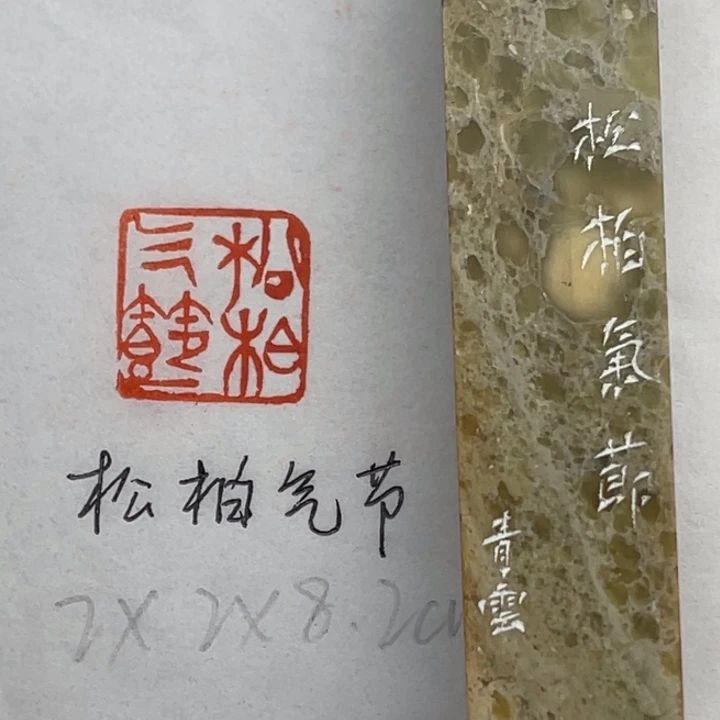 松柏
气節
松柏气节
2X2X8.2cm
松柏氣莭
青雲